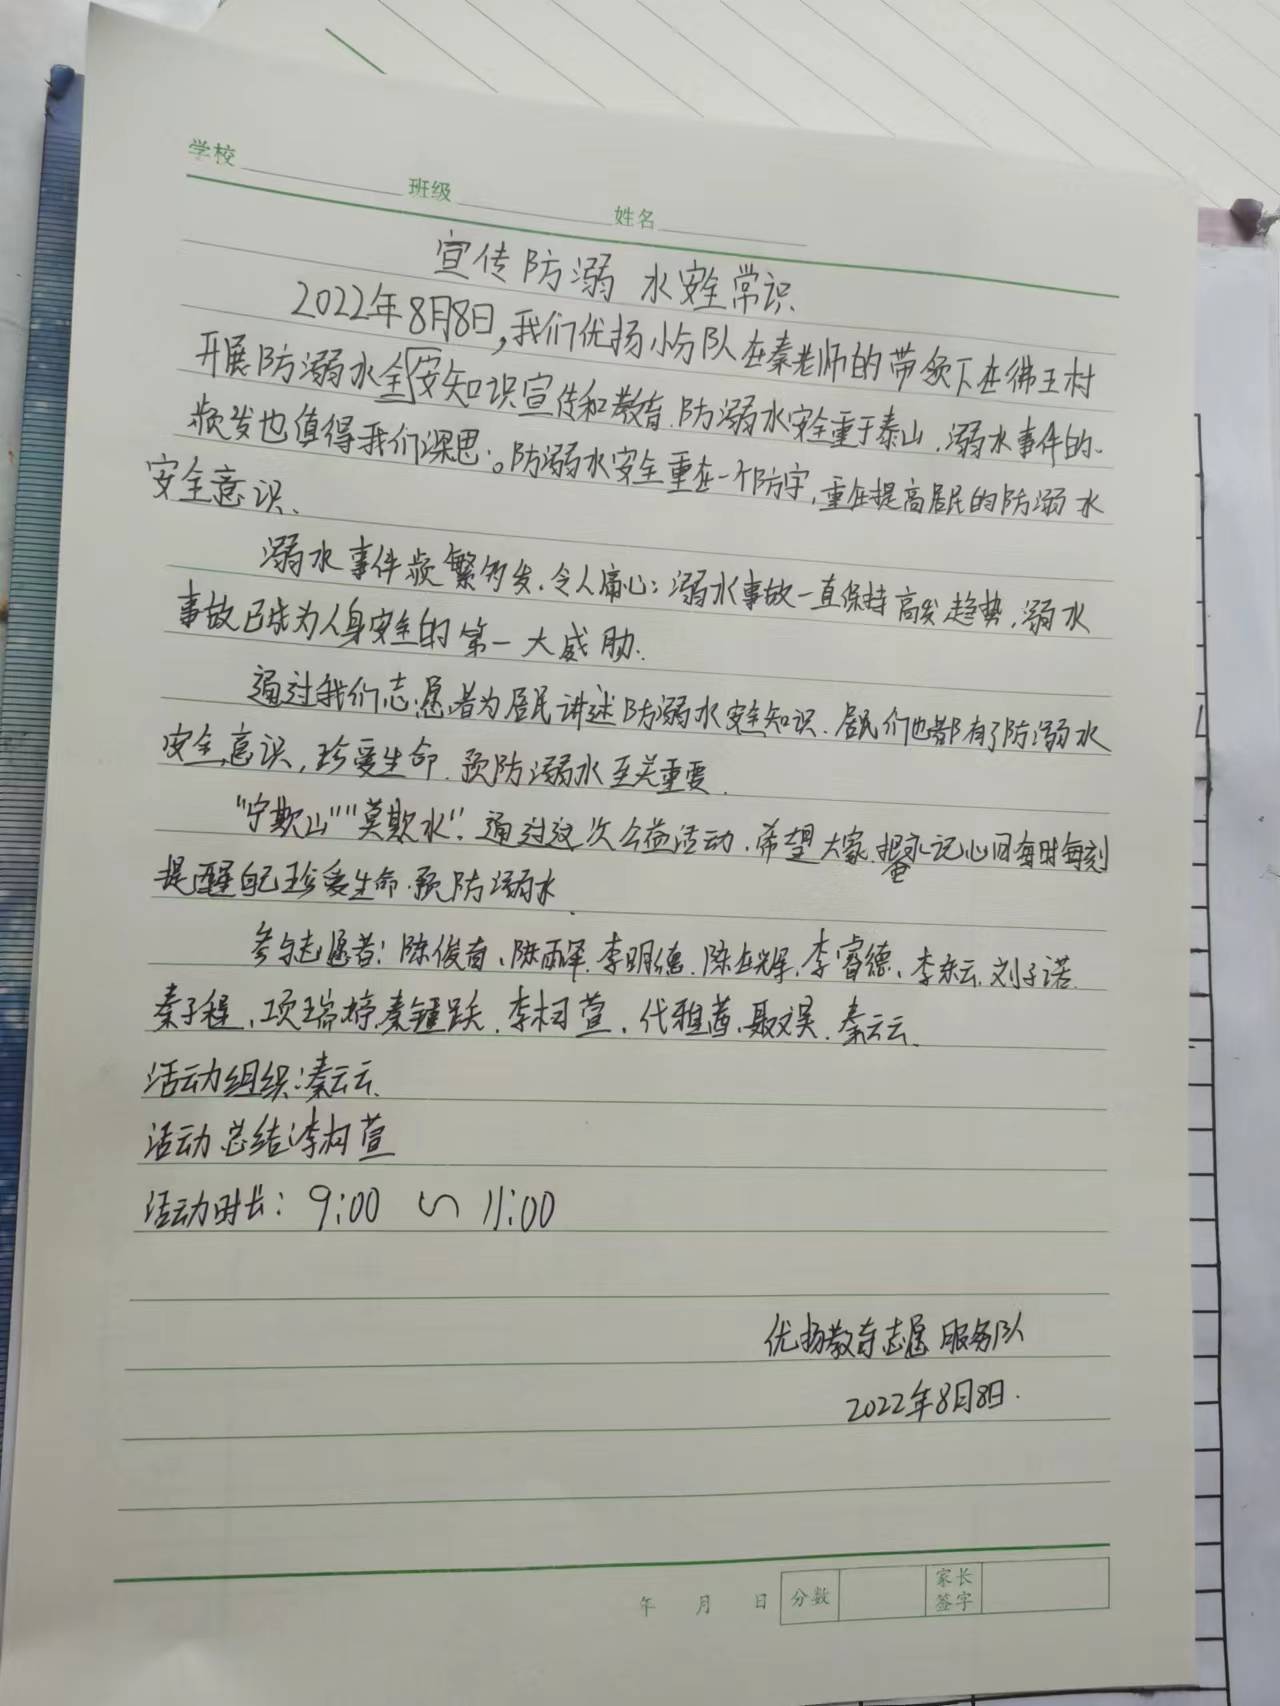 学校 班级 姓名
宣传防溺 水安全常识
2022年8月8日,我们优扬小分队在秦老师的带领下在佛王村
开展防溺水全安知识宣传和教育.防溺水安全重于泰山.溺水事件的
频发也值得我们深思。防溺水安全重在一个防字,重在提高居民的防溺水
安全意识、
溺水事件频繁的发.令人痛心:溺水事故一直保持高发趋势,溺水
事故已成为人身安全的第一大威胁.
通过我们志愿者为居民讲述防溺水安全知识.居民们也都有了防溺水
安全意识,珍爱生命.预防溺水至关重要.
"宁欺山""莫欺水".通过这次公益活动.希望大家 永记心间每时每刻
提醒自己珍爱生命.预防溺水
参与志愿者:陈俊奇、陈雨泽.李明德.陈 .李睿德、李 云.刘子诺.
秦子程、项瑞婷.秦 跃.李柯萱、代雅茜.聂 .秦云云.
活动组织:秦云云.
活动总结:李柯萱
活动时长:9:00 ~ 11:00
优扬教育志愿服务队
2022年8月8日.
年 月 日 分数 家长签字